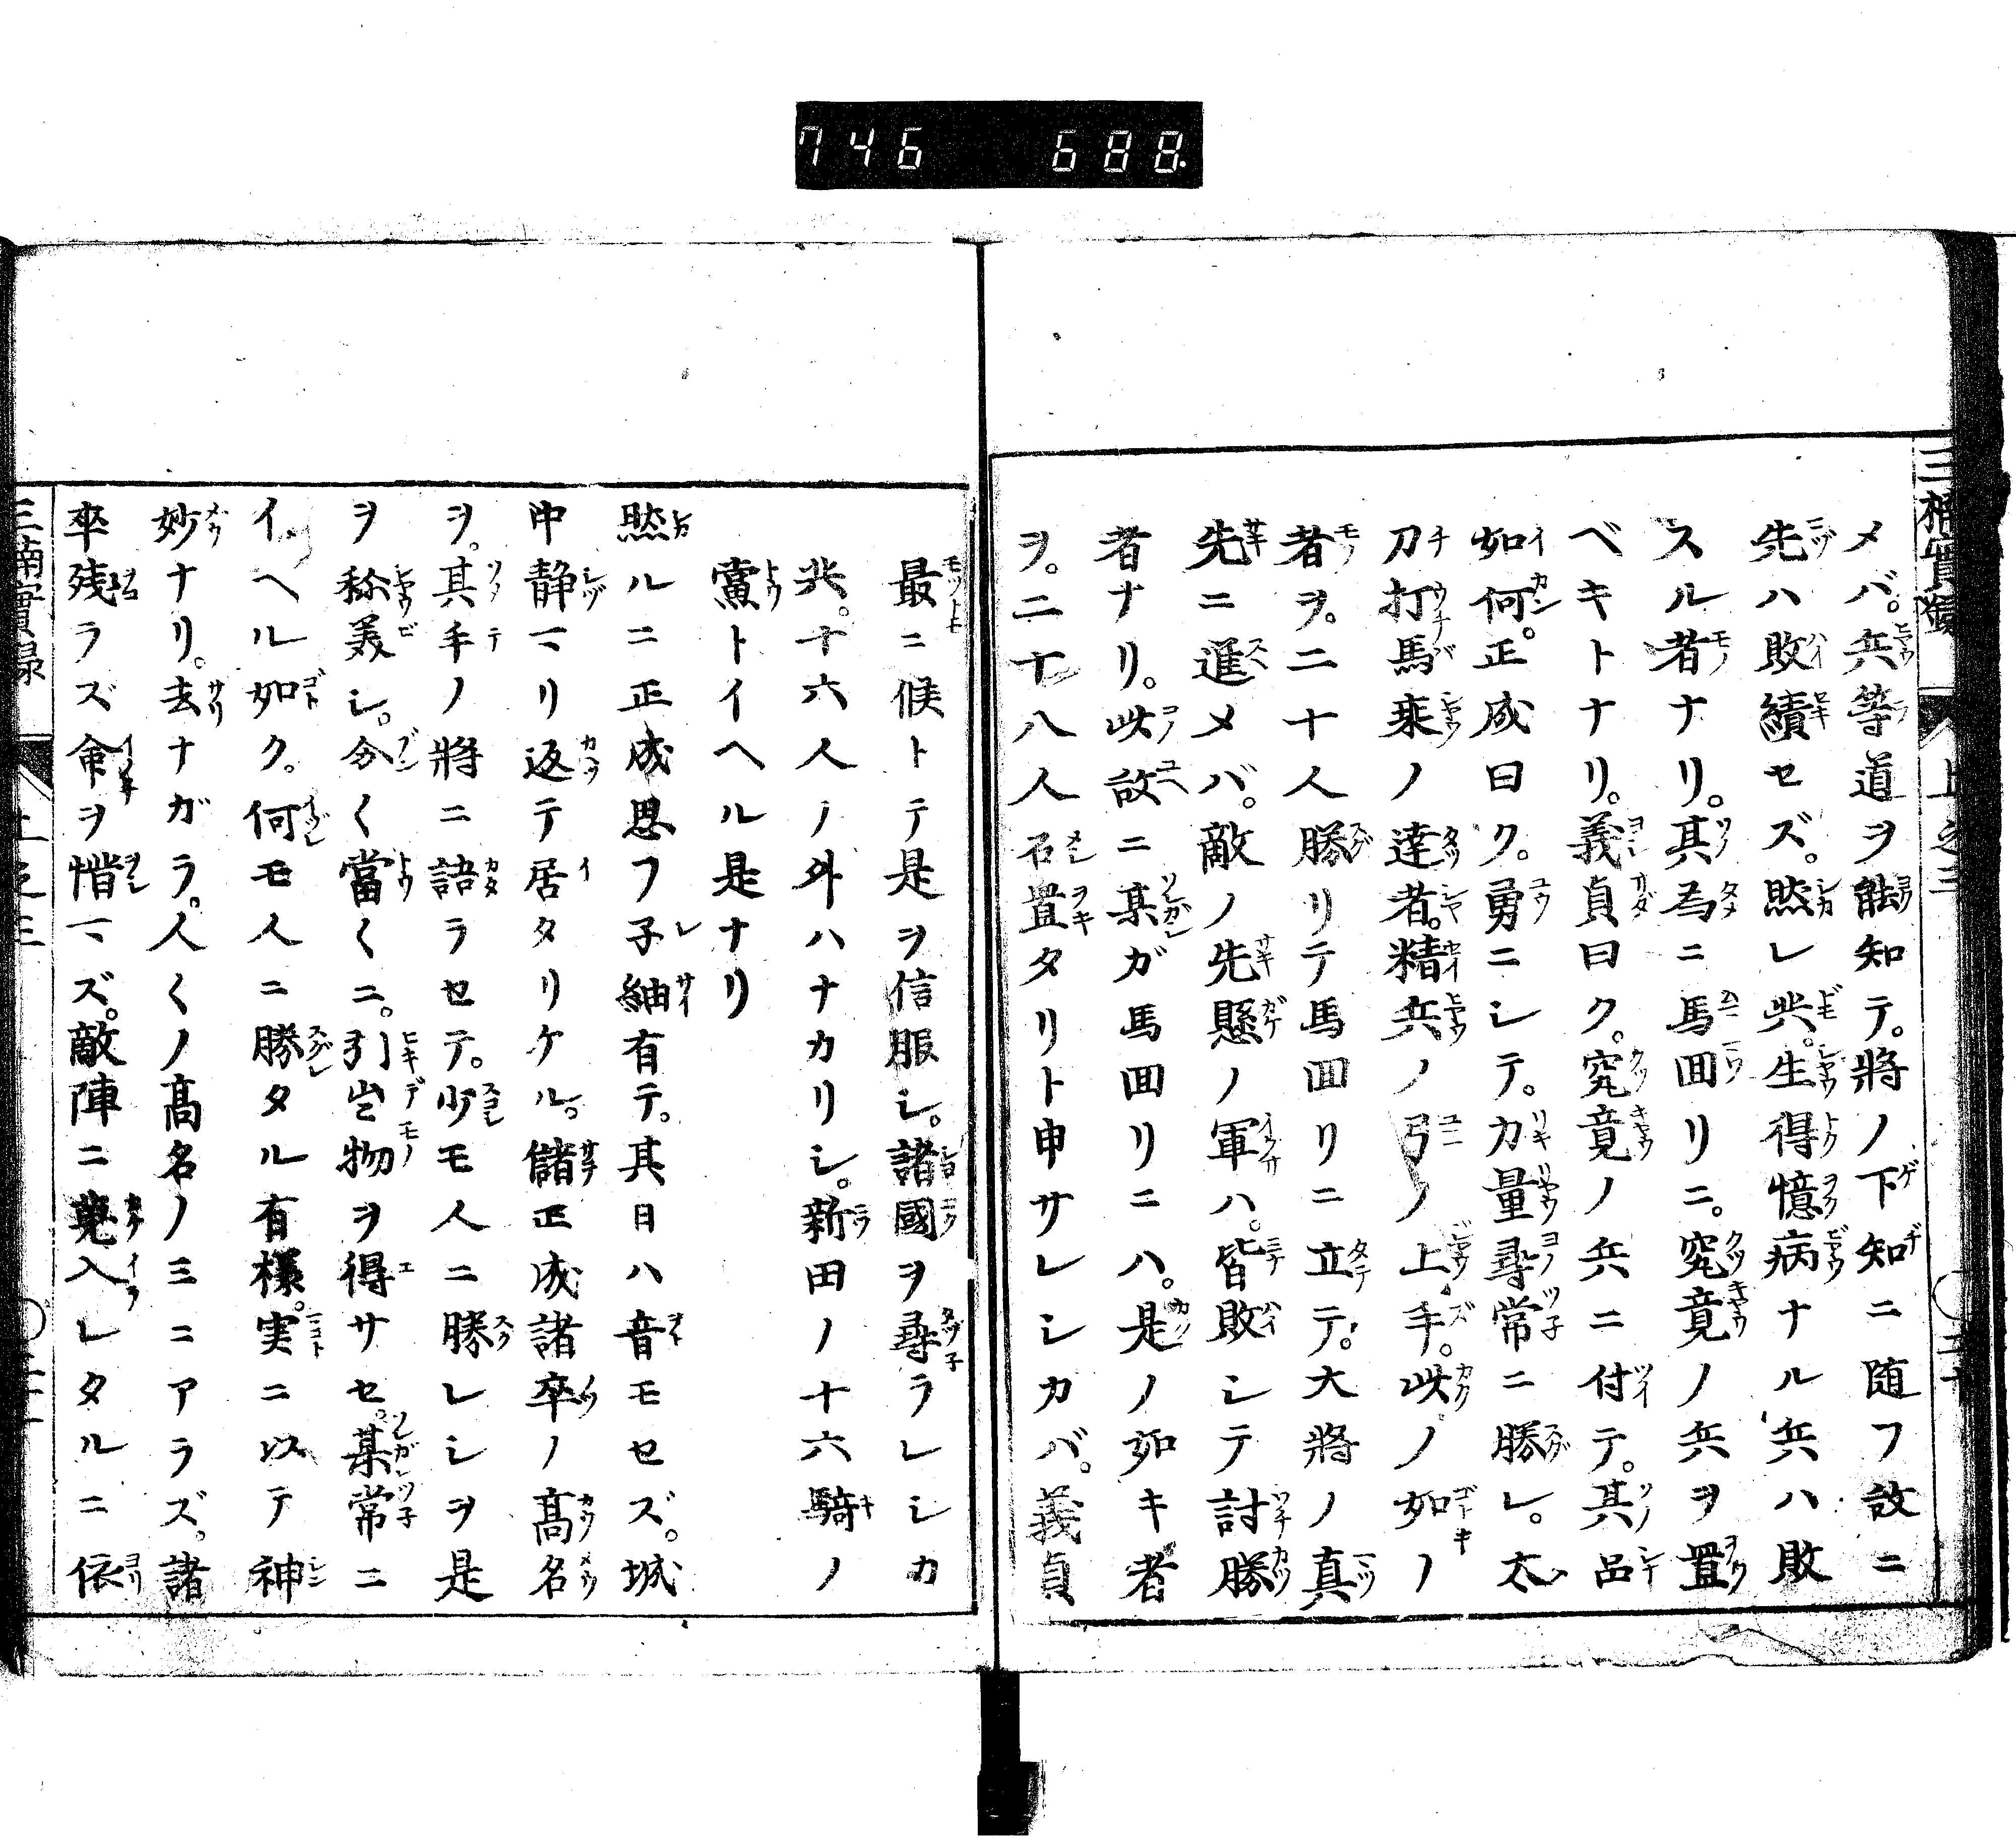 746 688.
三楠實録 上之三
メバ。兵等道ヲ能知テ。將ノ下知ニ随フ故ニ
先ハ敗績セズ。然レ共。生得憶病ナル兵ハ敗
スル者ナリ。其為ニ馬回リニ。究竟ノ兵ヲ置
ベキトナリ。義貞曰ク。究竟ノ兵ニ付テ。其品
如何。正成曰ク。勇ニシテ。力量尋常ニ勝レ。太
刀打馬乘ノ達者。精兵ノ弓ノ上手。此ノ如ノ
者ヲ。二十人勝リテ馬回リニ立テ。大將ノ真
先ニ進メバ。敵ノ先懸ノ軍ハ。皆敗シテ討勝
者ナリ。此故ニ某ガ馬回リニハ。是ノ如キ者
ヲ。二十八人召置タリト申サレシカバ。義貞
最ニ候トテ是ヲ信服シ。諸國ヲ尋ラレシカ
共。十六人ノ外ハナカリシ。新田ノ十六騎ノ
黨トイヘル是ナリ
然ルニ正成思フ子細有テ。其日ハ音モセズ。城
中静マリ返テ居タリケル。儲正成諸卒ノ高名
ヲ。其手ノ將ニ語ラセテ。少モ人ニ勝レシヲ是
ヲ称美シ。分〱當〱ニ。引出物ヲ得サセ。某常ニ
イヘル如ク。何モ人ニ勝タル有様。実ニ以テ神
妙ナリ。去ナガラ。人〱ノ高名ノミニアラズ。諸
卒残ラズ命ヲ惜マズ。敵陣ニ蒐入レタルニ依
三楠實録 上之三